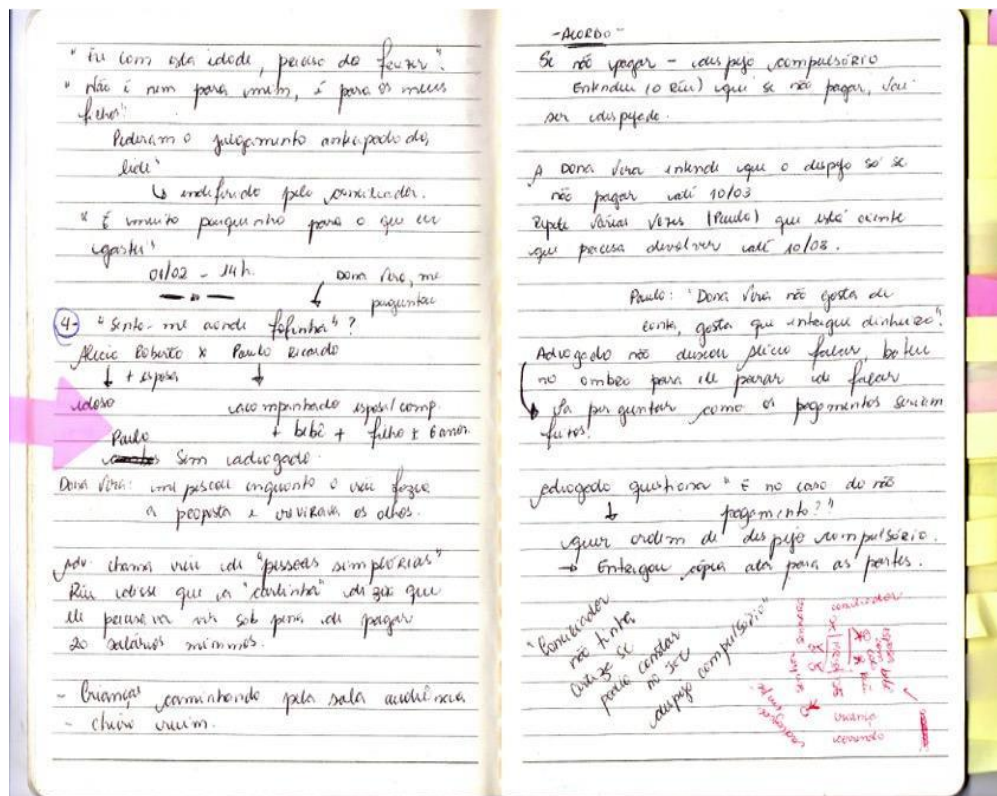 "Eu com esta idade, preciso do fazer".
"Não é nem para mim, é para os meus
filhos"
Pediram o julgamento antecipado da
lide
↳ indeferido pelo conciliador.
"É muito pouquinho para o que eu
gastei"
01/02 - 14h.
Dona Vera, me
perguntou
4- "Sento-me aonde fofinha"?
Alicio Roberto x Paulo Ricardo
↓ + esposa ↓
idoso
acompanhado esposa/comp.
+ bebê + filho ± 6 anos.
Paulo
sem advogado.
Dona Vera: me piscou enquanto o réu fazia
a proposta e revirava os olhos.
Adv. chama réu de "pessoas simplórias"
Réu disse que a "cartinha" dizia que
ele precisava vir sob pena de pagar
20 salários mínimos.
- Crianças caminhando pela sala audiência
- cheiro ruim.
-ACORDO-
Se não pagar - despejo compulsório
Entendeu (o Réu) que se não pagar, vai
ser despejado.
A Dona Vera entende que o despejo só se
não pagar até 10/03
Repete várias vezes (Paulo) que está ciente
que precisa devolver até 10/03.
Paulo: "Dona Vera não gosta de
conta, gosta que entregue dinheiro".
Advogado não deixou Alicio falar, bateu
no ombro para ele parar de falar
↳ Ia perguntar como os pagamentos seriam
feitos!
Advogado questiona "E no caso do não
↓ pagamento?"
quer ordem de despejo compulsório.
→ Entregou cópia ata para as partes.
"Conciliador
não tinha
certeza se
podia constar
no JEC
despejo compulsório"
conciliador
mesa
esposa bebê
réu
advogado
criança
correndo